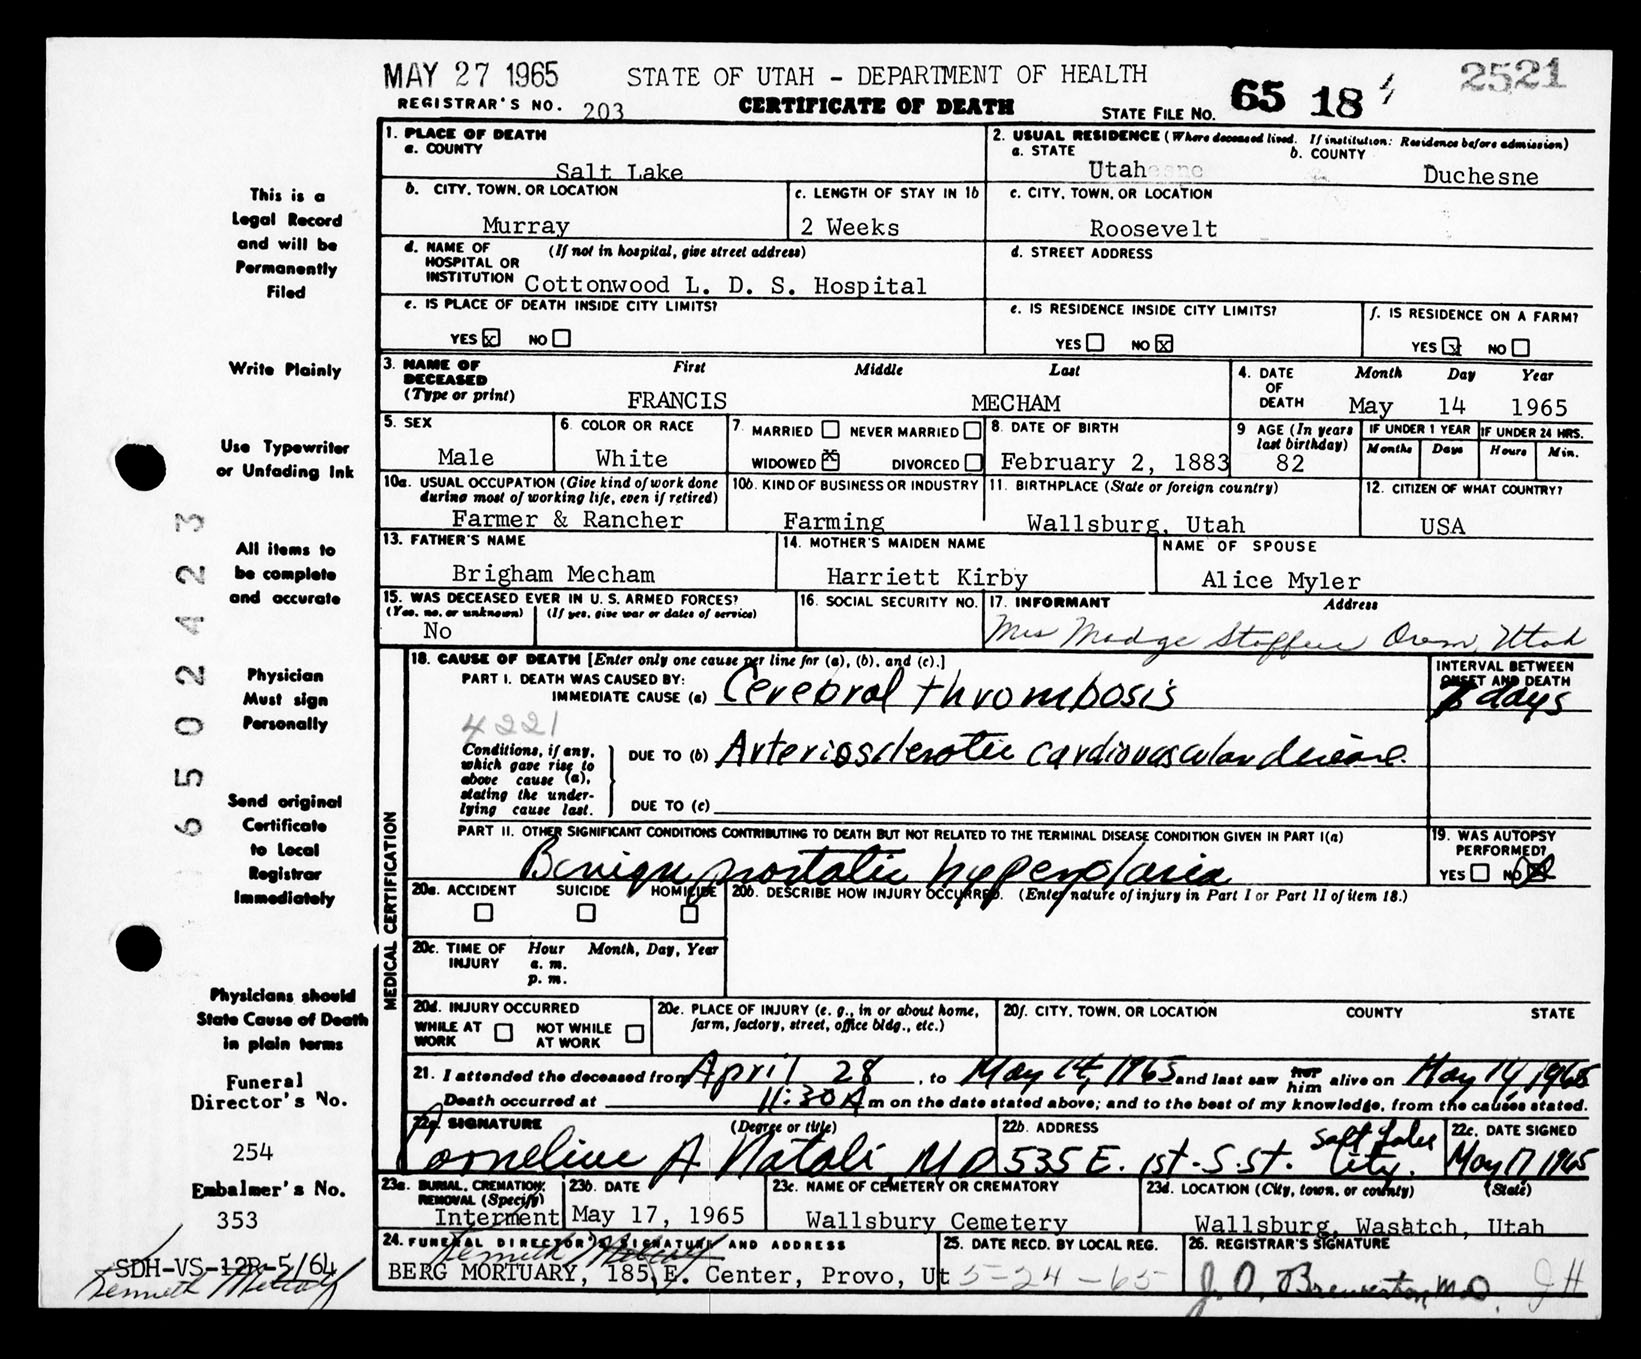 MAY 27 1965 STATE OF UTAH - DEPARTMENT OF HEALTH 2521
REGISTRAR'S NO. 203 CERTIFICATE OF DEATH STATE FILE NO. 65 18
1. PLACE OF DEATH
a. COUNTY
Salt Lake
2. USUAL RESIDENCE (Where deceased lived. If institution: Residence before admission)
a. STATE b. COUNTY
Utah Duchesne
b. CITY, TOWN, OR LOCATION
Murray
c. LENGTH OF STAY IN 1b
2 Weeks
c. CITY, TOWN, OR LOCATION
Roosevelt
d. NAME OF (If not in hospital, give street address)
HOSPITAL OR
INSTITUTION Cottonwood L. D. S. Hospital
d. STREET ADDRESS
e. IS PLACE OF DEATH INSIDE CITY LIMITS?
YES x NO
e. IS RESIDENCE INSIDE CITY LIMITS?
YES NO x
f. IS RESIDENCE ON A FARM?
YES x NO
3. NAME OF First Middle Last
DECEASED
(Type or print)
FRANCIS MECHAM
4. DATE Month Day Year
OF
DEATH May 14 1965
5. SEX
Male
6. COLOR OR RACE
White
7. MARRIED NEVER MARRIED
WIDOWED x DIVORCED
8. DATE OF BIRTH
February 2, 1883
9 AGE (In years
last birthday)
82
IF UNDER 1 YEAR IF UNDER 24 HRS.
Months Days Hours Min.
10a. USUAL OCCUPATION (Give kind of work done
during most of working life, even if retired)
Farmer & Rancher
10b. KIND OF BUSINESS OR INDUSTRY
Farming
11. BIRTHPLACE (State or foreign country)
Wallsburg, Utah
12. CITIZEN OF WHAT COUNTRY?
USA
13. FATHER'S NAME
Brigham Mecham
14. MOTHER'S MAIDEN NAME
Harriett Kirby
NAME OF SPOUSE
Alice Myler
15. WAS DECEASED EVER IN U. S. ARMED FORCES?
(Yes, no, or unknown) (If yes, give war or dates of service)
No
16. SOCIAL SECURITY NO.
17. INFORMANT Address
Mrs Madge Orem, Utah
MEDICAL CERTIFICATION
18. CAUSE OF DEATH [Enter only one cause per line for (a), (b), and (c).]
PART I. DEATH WAS CAUSED BY:
IMMEDIATE CAUSE (a) Cerebral thrombosis
INTERVAL BETWEEN
ONSET AND DEATH
days
4221
Conditions, if any,
which gave rise to
above cause (a),
stating the under-
lying cause last.
DUE TO (b) Arteriosclerotic cardiovascular disease.
DUE TO (c)
PART II. OTHER SIGNIFICANT CONDITIONS CONTRIBUTING TO DEATH BUT NOT RELATED TO THE TERMINAL DISEASE CONDITION GIVEN IN PART I(a)
Benign prostatic hyperplasia
19. WAS AUTOPSY
PERFORMED?
YES NO x
20a. ACCIDENT SUICIDE HOMICIDE
20b. DESCRIBE HOW INJURY OCCURRED. (Enter nature of injury in Part I or Part II of item 18.)
20c. TIME OF Hour Month, Day, Year
INJURY a. m.
p. m.
20d. INJURY OCCURRED
WHILE AT NOT WHILE
WORK AT WORK
20e. PLACE OF INJURY (e. g., in or about home,
farm, factory, street, office bldg., etc.)
20f. CITY, TOWN, OR LOCATION COUNTY STATE
21. I attended the deceased from April 28, to May 14, 1965 and last saw her him alive on May 14, 1965
Death occurred at 11:30 A m on the date stated above; and to the best of my knowledge, from the causes stated.
22a. SIGNATURE (Degree or title)
Cornelius A Natoli, MD
22b. ADDRESS
535 E. 1st. S. St. Salt Lake City.
22c. DATE SIGNED
May 17, 1965
23a. BURIAL, CREMATION,
REMOVAL (Specify)
Interment
23b. DATE
May 17, 1965
23c. NAME OF CEMETERY OR CREMATORY
Wallsbury Cemetery
23d. LOCATION (City, town, or county) (State)
Wallsburg, Wasatch, Utah
24. FUNERAL DIRECTOR'S SIGNATURE AND ADDRESS
BERG MORTUARY, 185 E. Center, Provo, Ut
25. DATE RECD. BY LOCAL REG.
5-24-65
26. REGISTRAR'S SIGNATURE
J. O. Brewerton, M.D. JH
This is a
Legal Record
and will be
Permanently
Filed
Write Plainly
Use Typewriter
or Unfading Ink
All items to
be complete
and accurate
Physician
Must sign
Personally
Send original
Certificate
to Local
Registrar
Immediately
Physicians should
State Cause of Death
in plain terms
Funeral
Director's No.
254
Embalmer's No.
353
SDH-VS-12R-5/64
Kenneth
6502423